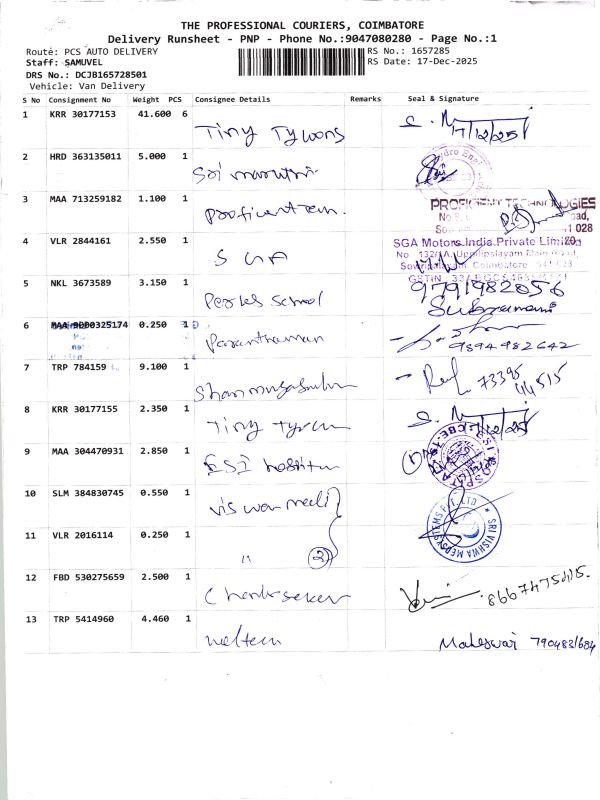 THE PROFESSIONAL COURIERS, COIMBATORE
Delivery Runsheet - PNP - Phone No.:9047080280 - Page No.:1
Route: PCS AUTO DELIVERY
RS No.: 1657285
Staff: SAMUVEL
RS Date: 17-Dec-2025
DRS No.: DCJB165728501
Vehicle: Van Delivery
S No Consignment No Weight PCS Consignee Details Remarks Seal & Signature
1 KRR 30177153 41.600 6 Tiny Tycoons 17/12/25
2 HRD 363135011 5.000 1 Sri
3 MAA 713259182 1.100 1 Proficient Tech.
PROFICIENT TECHNOLOGIES
4 VLR 2844161 2.550 1 SGA
SGA Motors India Private Limited
No 132/1A, Uppilipalayam Main Road,
Coimbatore
5 NKL 3673589 3.150 1 School 9791982056
Subramani
6 MAA 0.250 1 Paranthaman
9894982642
7 TRP 784159 9.100 1 73395
44515
8 KRR 30177155 2.350 1 Tiny 17/12/25
9 MAA 304470931 2.850 1 ESI
10 SLM 384830745 0.550 1
SRI VISHWA MEDSYSTEMS PVT. LTD
11 VLR 2016114 0.250 1 " 2
12 FBD 530275659 2.500 1 8667475415.
13 TRP 5414960 4.460 1 Maheswari 790483/684